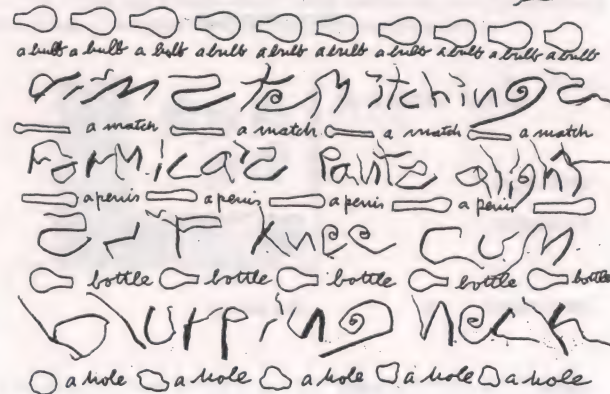 a bulb a bulb a bulb a bulb a bulb a bulb a bulb a bulb a bulb a bulb
itching
a match a match a match a match
Formica's Pants
a penis a penis a penis a penis
knee cum
bottle bottle bottle bottle bottle
blurping neck
a hole a hole a hole a hole a hole